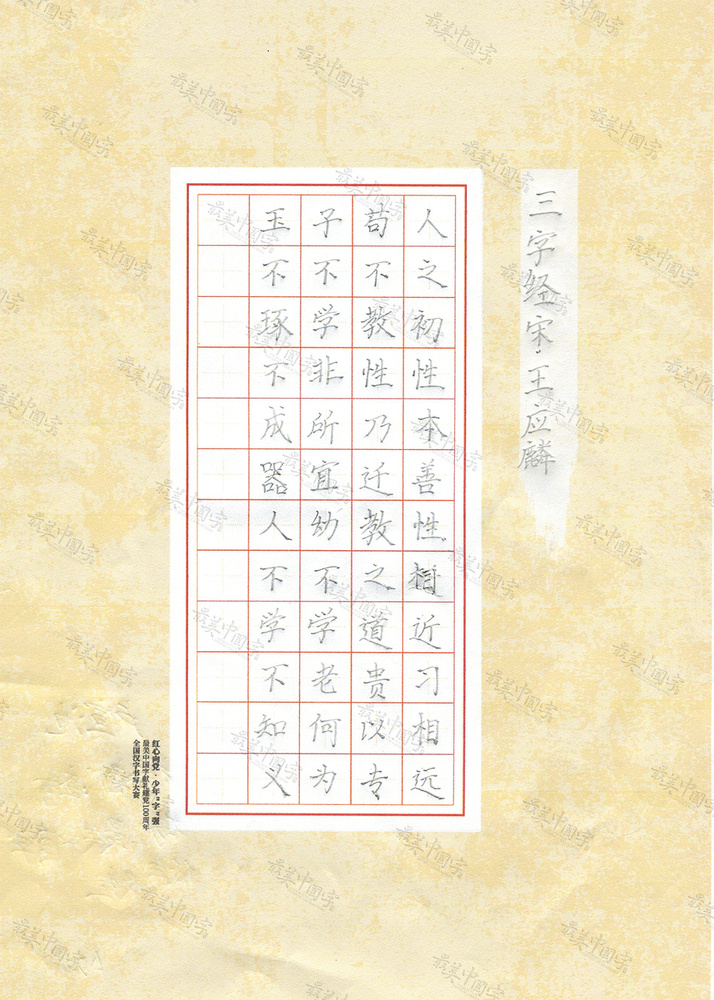 三字经宋·王应麟
人之初性本善性相近习相远
苟不教性乃迁教之道贵以专
子不学非所宜幼不学老何为
玉不琢不成器人不学不知义
红心向党·少年“字”强
最美中国字献礼建党100周年
全国汉字书写大赛
最美中国字